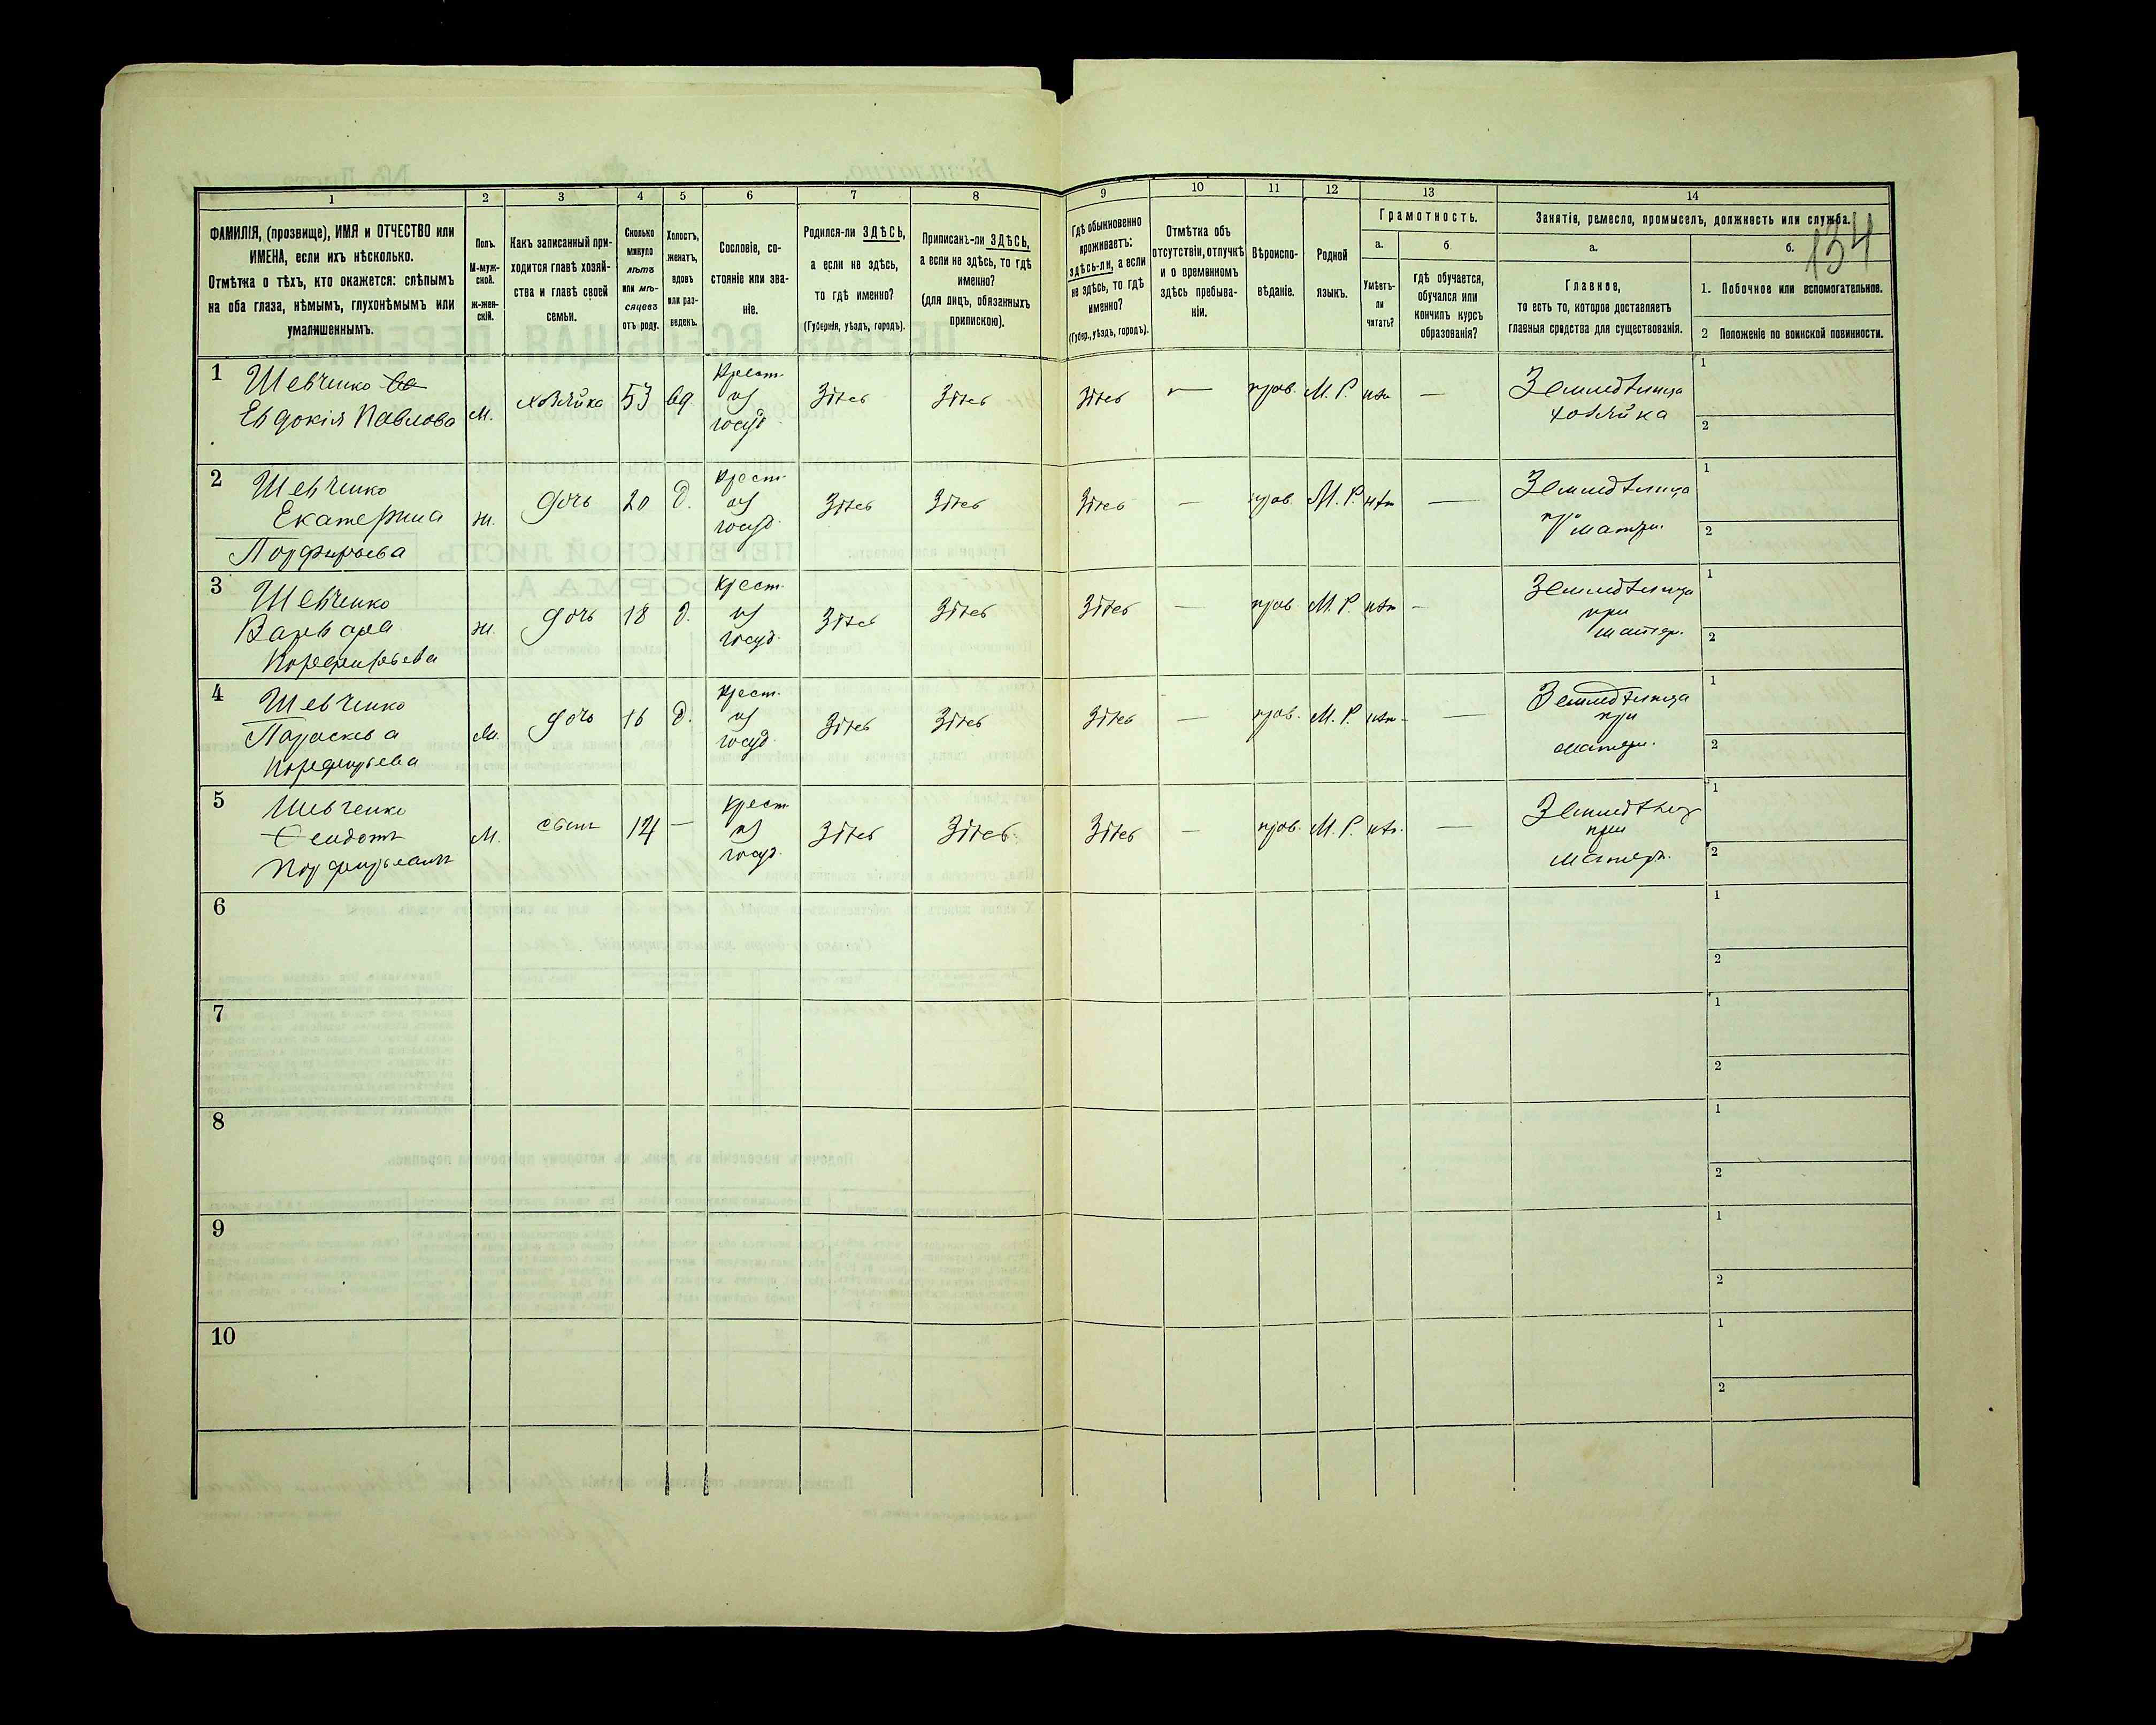 134
1 2 3 4 5 6 7 8 9 10 11 12 13 14
ФАМИЛІЯ, (прозвище), ИМЯ и ОТЧЕСТВО или
ИМЕНА, если ихъ нѣсколько.
Отмѣтка о тѣхъ, кто окажется: слѣпымъ
на оба глаза, нѣмымъ, глухонѣмымъ или
умалишеннымъ.
Полъ.
М-муж-
ской.
Ж-жен-
скій.
Какъ записанный при-
ходится главѣ хозяй-
ства и главѣ своей
семьи.
Сколько
минуло
лѣтъ
или мѣ-
сяцевъ
отъ роду.
Холостъ,
женатъ,
вдовъ
или раз-
веденъ.
Сословіе, со-
стояніе или зва-
ніе.
Родился-ли ЗДѢСЬ,
а если не здѣсь,
то гдѣ именно?
(Губернія, уѣздъ, городъ).
Приписанъ-ли ЗДѢСЬ,
а если не здѣсь, то гдѣ
именно?
(для лицъ, обязанныхъ
припискою).
Гдѣ обыкновенно
проживаетъ:
здѣсь-ли, а если
не здѣсь, то гдѣ
именно?
(Губер., уѣздъ, городъ).
Отмѣтка объ
отсутствіи, отлучкѣ
и о временномъ
здѣсь пребыва-
ніи.
Вѣроиспо-
вѣданіе.
Родной
языкъ.
Грамотность.
а.
Умѣетъ-
ли
читать?
б.
гдѣ обучается,
обучался или
кончилъ курсъ
образованія?
Занятіе, ремесло, промыселъ, должность или служба.
а.
Главное,
то есть то, которое доставляетъ
главныя средства для существованія.
б.
1. Побочное или вспомогательное.
2 Положеніе по воинской повинности.
1 Шевченко
Евдокія Павлова
М. хозяйка 53 вд. Крест. из госуд. Здѣсь Здѣсь Здѣсь — прав. М. Р. нѣт — Земледѣлица хозяйка 1 2
2 Шевченко
Екатерина
Порфирьева
Ж. дочь 20 д. Крест. из госуд. Здѣсь Здѣсь Здѣсь — прав. М. Р. нѣт — Земледѣлица при матери. 1 2
3 Шевченко
Варвара
Порфирьева
Ж. дочь 18 д. Крест. из госуд. Здѣсь Здѣсь Здѣсь — прав М. Р. нѣт - Земледѣлица при матери. 1 2
4 Шевченко
Параскева
Порфирьева
М. дочь 16 д. Крест. из госуд. Здѣсь Здѣсь Здѣсь — прав. М. Р. нѣт — Земледѣлица при матери. 1 2
5 Шевченко
Феидотъ
Порфирьевичъ
М. сынъ 14 — Крест. из госуд. Здѣсь Здѣсь Здѣсь — прав. М. Р. нѣт. — Земледѣлец при матери. 1 2
6 1 2
7 1 2
8 1 2
9 1 2
10 1 2